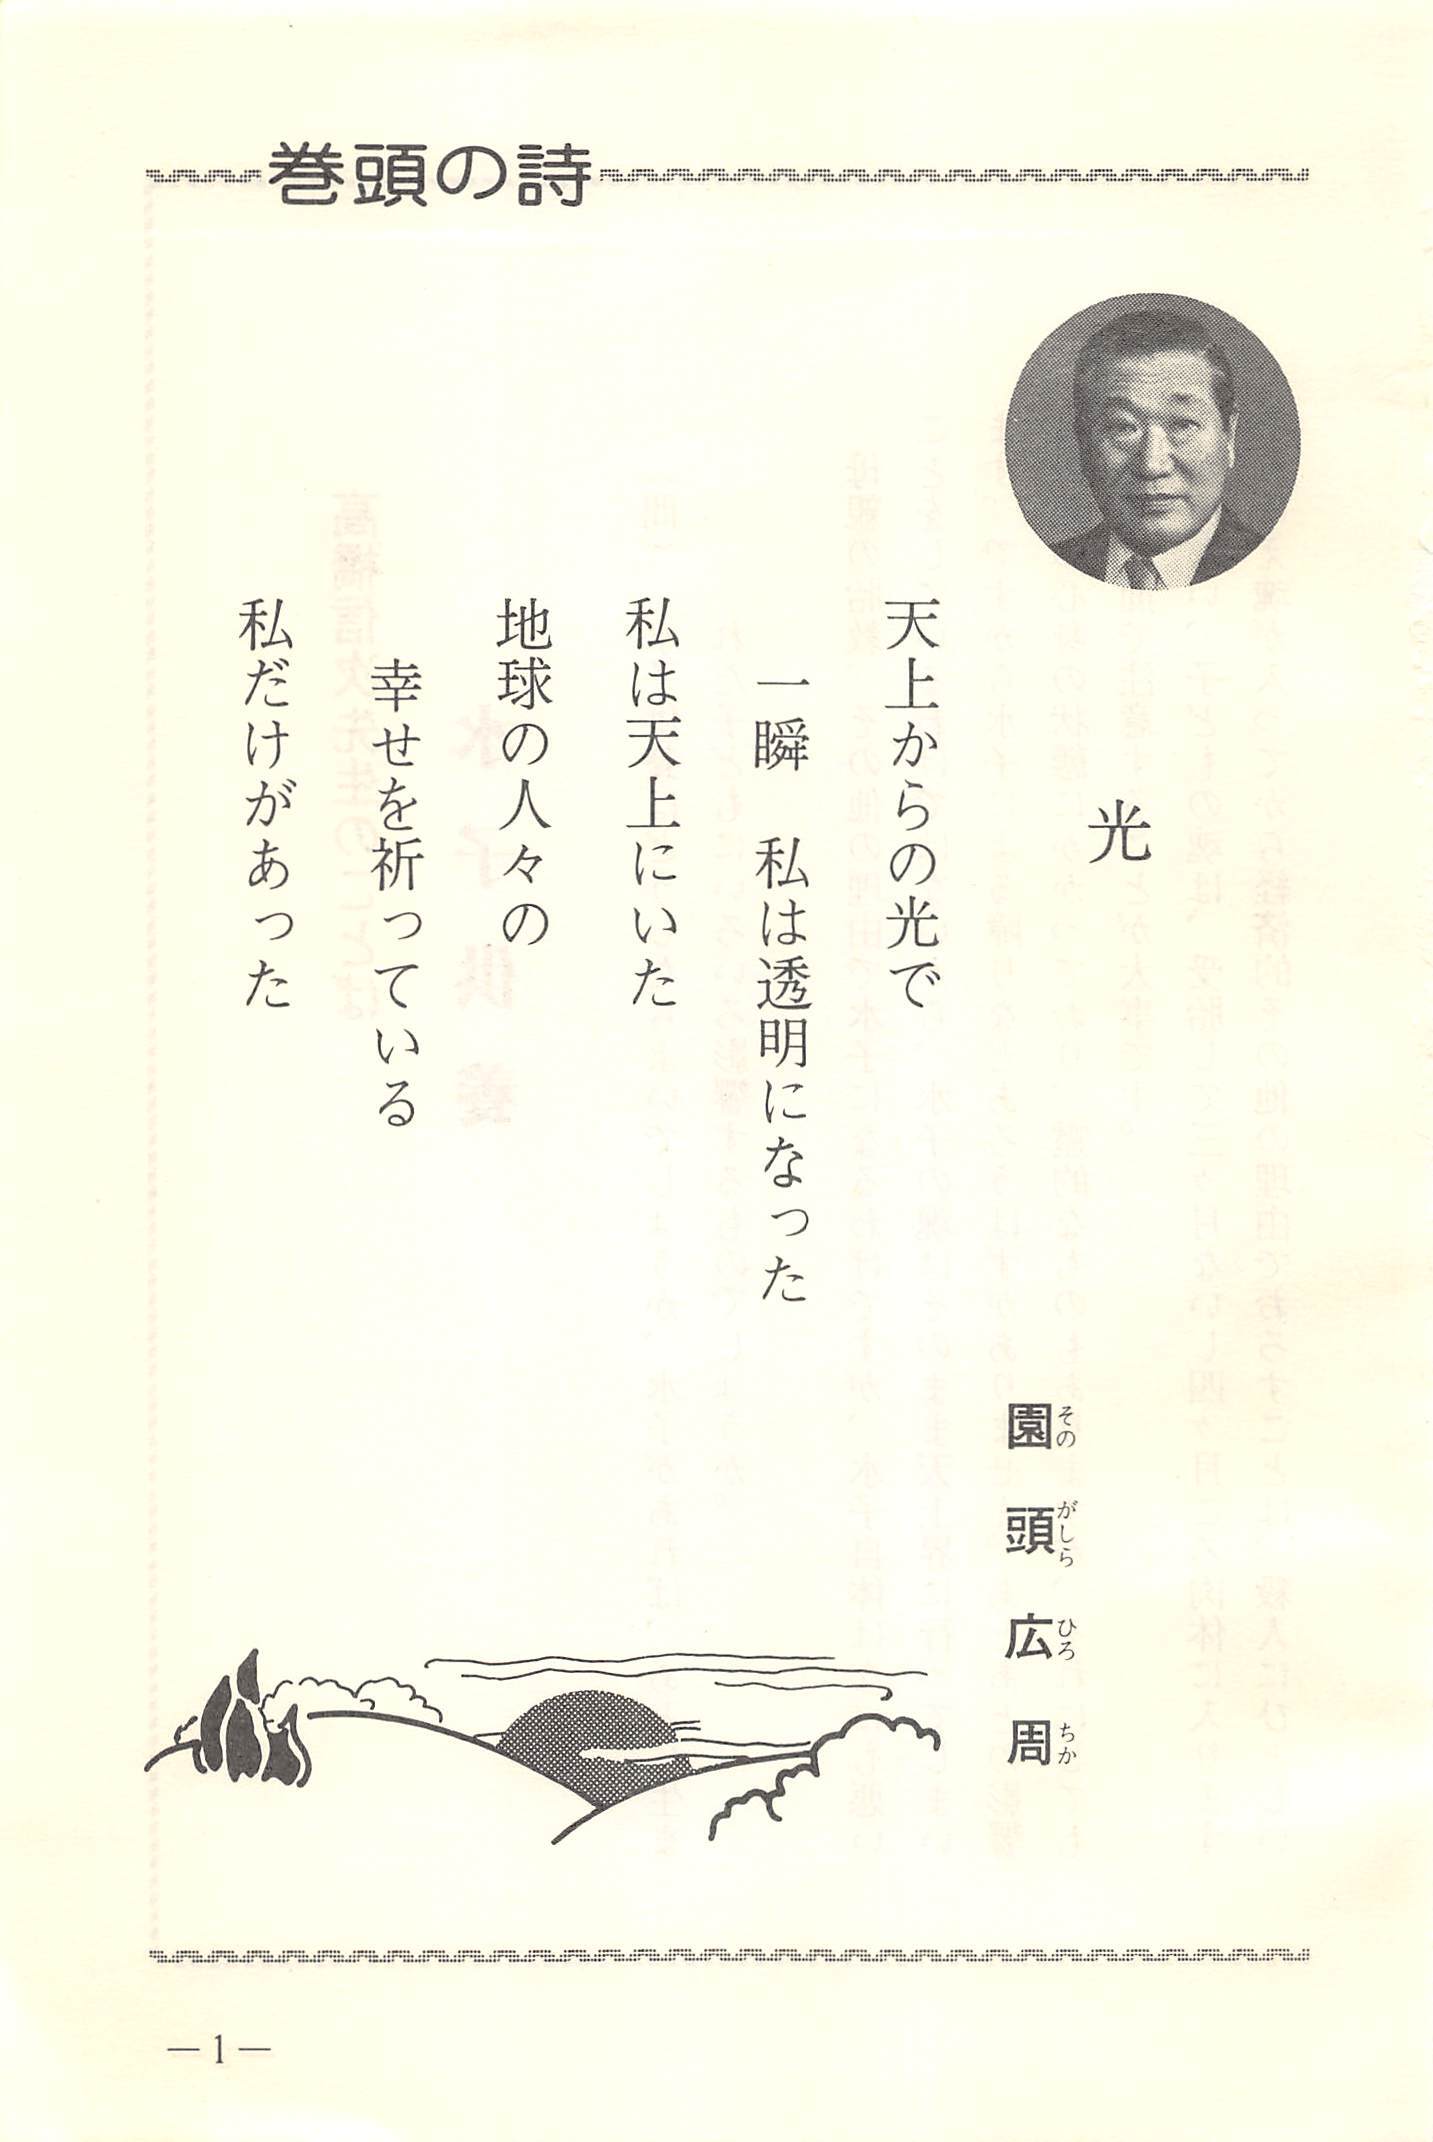 巻頭の詩
光
園頭広周
そのがしらひろちか
天上からの光で
一瞬　私は透明になった
私は天上にいた
地球の人々の
幸せを祈っている
私だけがあった
—1—